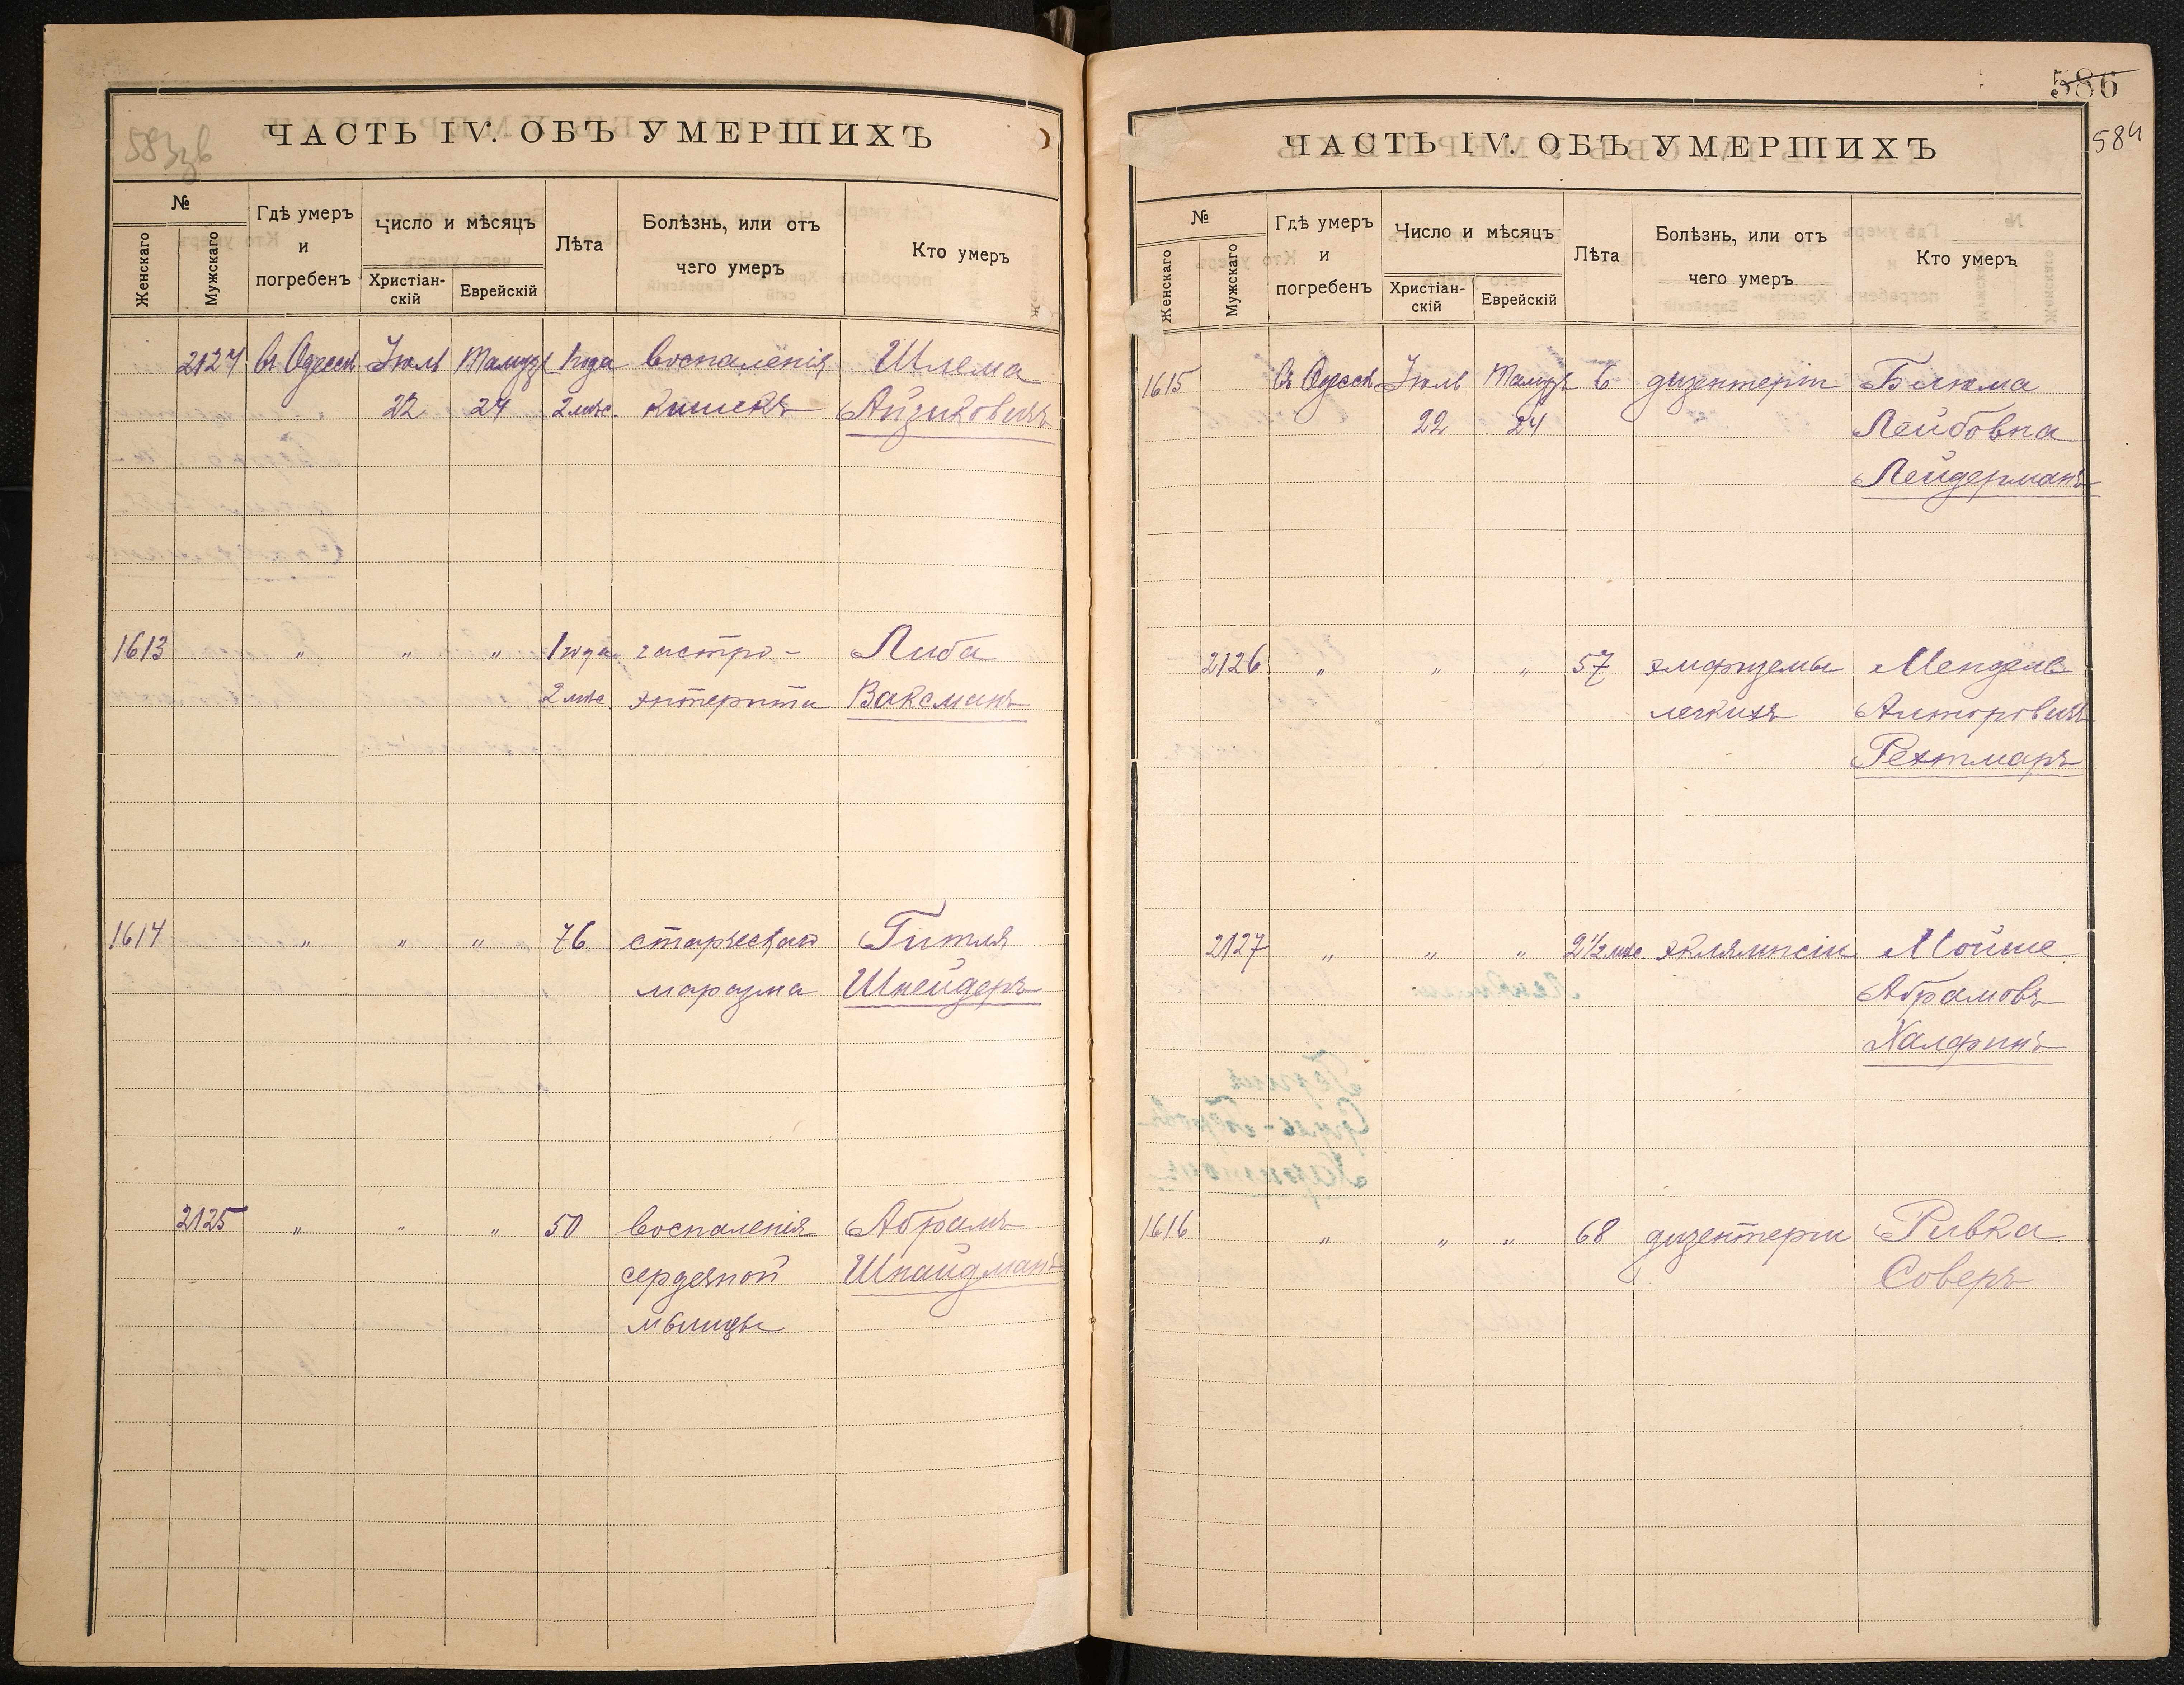 583зв
ЧАСТЬ IV. ОБЪ УМЕРШИХЪ
№
Женскаго
Мужскаго
Гдѣ умеръ
и
погребенъ
Число и мѣсяцъ
Христіан-
скій
Еврейскій
Лѣта
Болѣзнь, или отъ
чего умеръ
Кто умеръ
2124 Въ Одессѣ Іюль Тамузъ 1 года воспаленія Шлема
22 24 2 мѣс. кишекъ Айзиковичъ
1613 „ „ „ 1 года гастро- Либа
2 мѣс. энтерита Ваксманъ
1614 „ „ „ 76 старческаго Гитля
маразма Шнейдеръ
2125 „ „ „ 50 воспаленія Абрамъ
сердечной Шнайдманъ
мышцы
586
584
ЧАСТЬ IV. ОБЪ УМЕРШИХЪ
№
Женскаго
Мужскаго
Гдѣ умеръ
и
погребенъ
Число и мѣсяцъ
Христіан-
скій
Еврейскій
Лѣта
Болѣзнь, или отъ
чего умеръ
Кто умеръ
1615 Въ Одессѣ Іюль Тамузъ 6 дизентеріи Блюма
22 24 Лейбовна
Лейдерманъ
2126 „ „ „ 57 эмфиземы Мендель
легкихъ Алтеровичъ
Рехтмаръ
2127 „ „ „ 2½ мѣс. эклямпсіи Мойше
Абрамовъ
Халфинъ
1616 „ „ „ 68 дизентеріи Ривка
Соверъ